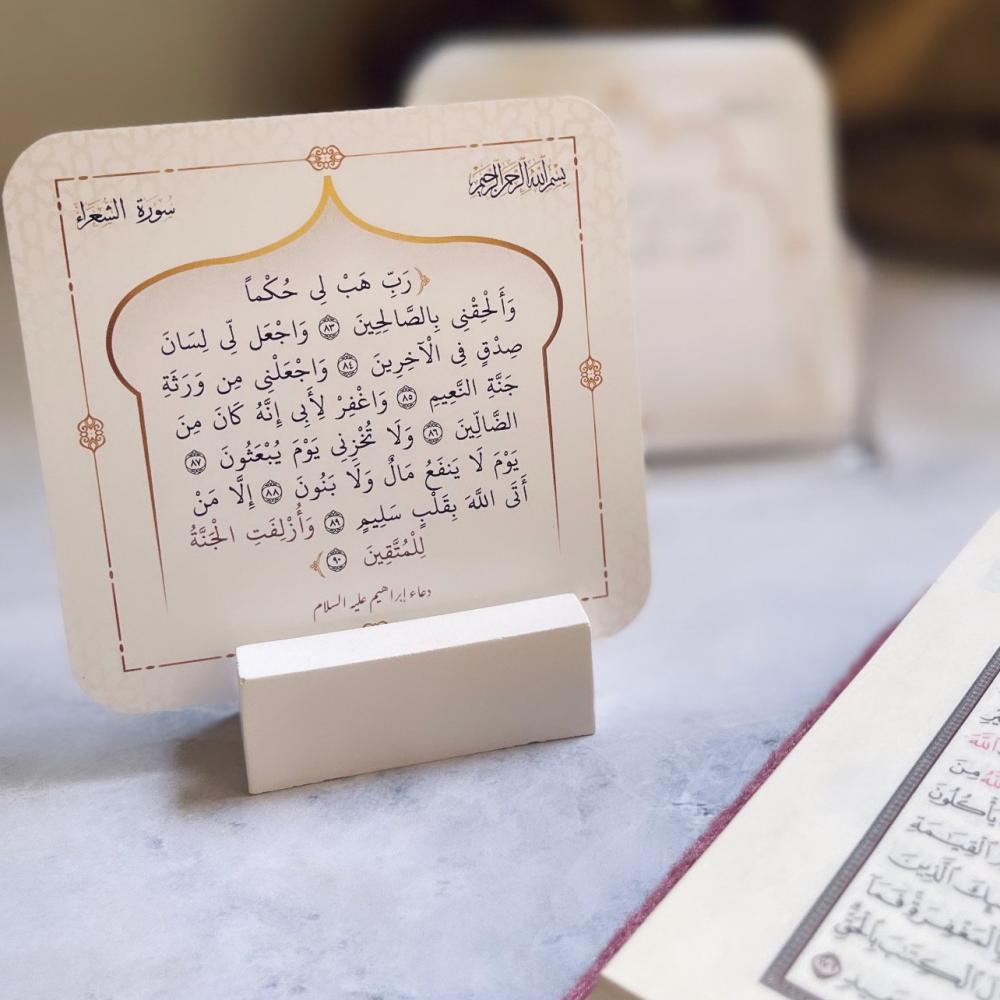 بسم الله الرحمن الرحيم
سورة الشعراء
﴿رَبِّ هَبْ لِى حُكْماً
وَأَلْحِقْنِى بِالصَّالِحِينَ ٨٣ وَاجْعَل لِّى لِسَانَ
صِدْقٍ فِى الْآخِرِينَ ٨٤ وَاجْعَلْنِى مِن وَرَثَةِ
جَنَّةِ النَّعِيمِ ٨٥ وَاغْفِرْ لِأَبِى إِنَّهُ كَانَ مِنَ
الضَّالِّينَ ٨٦ وَلَا تُخْزِنِى يَوْمَ يُبْعَثُونَ ٨٧
يَوْمَ لَا يَنفَعُ مَالٌ وَلَا بَنُونَ ٨٨ إِلَّا مَنْ
أَتَى اللَّهَ بِقَلْبٍ سَلِيمٍ ٨٩ وَأُزْلِفَتِ الْجَنَّةُ
لِلْمُتَّقِينَ ٩٠﴾
دعاء إبراهيم عليه السلام
مِنَ
يَأْكُلُونَ
الْقِيَـٰمَةِ
الَّذِينَ
فَمَا